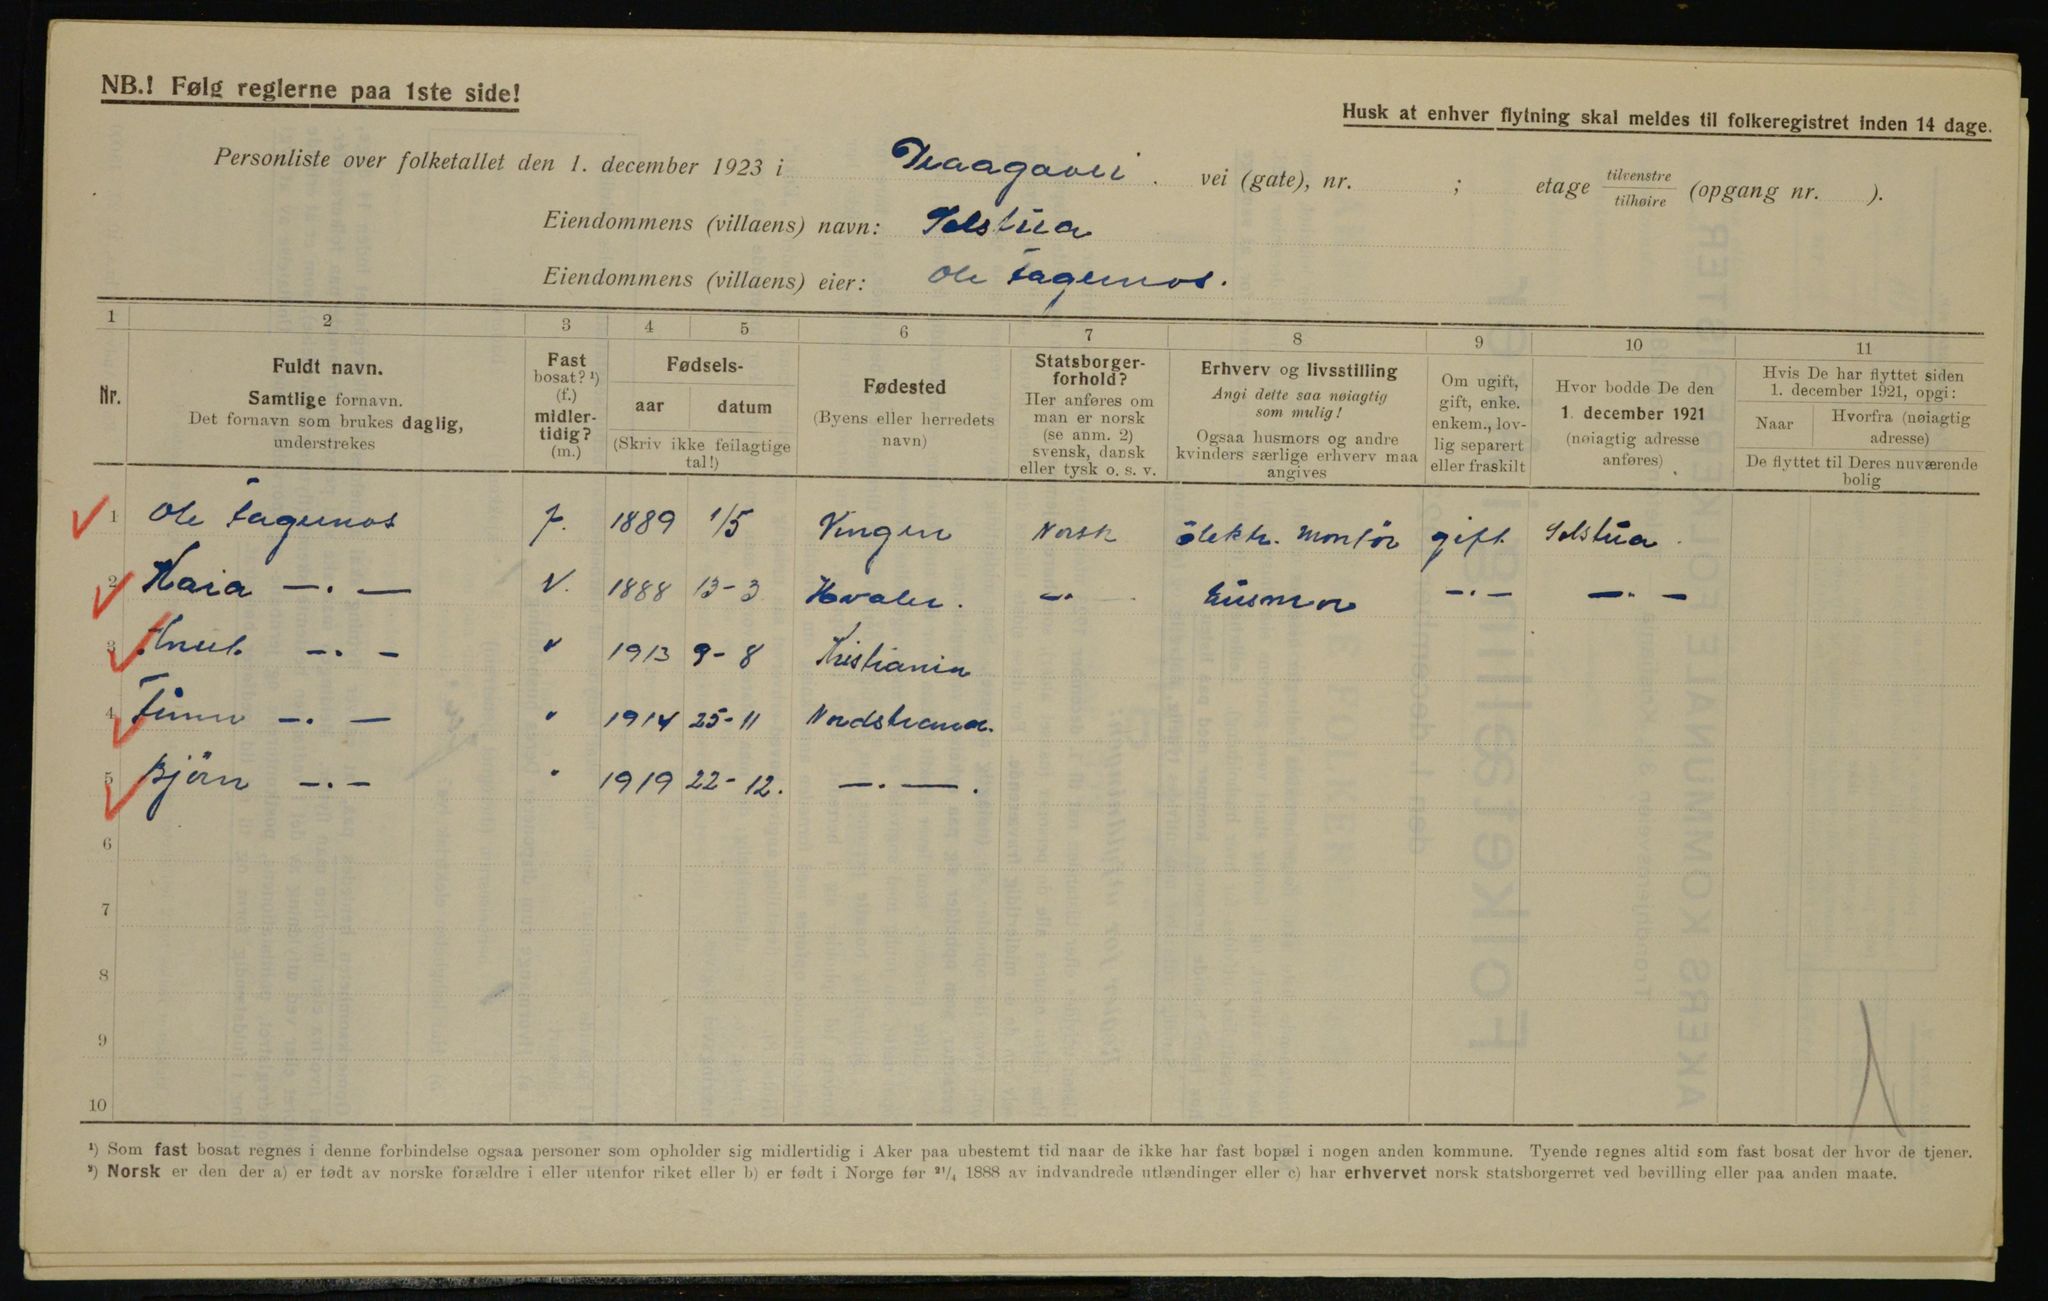 NB.! Følg reglerne paa 1ste side!
Husk at enhver flytning skal meldes til folkeregistret inden 14 dage.
Personliste over folketallet den 1. december 1923 i vei (gate), nr. ; etage tilvenstre tilhøire (opgang nr. ).
Eiendommens (villaens) navn: Solstua
Eiendommens (villaens) eier: Ole Fagermos.
1 2 3 4 5 6 7 8 9 10 11
Nr.
Fuldt navn.
Samtlige fornavn.
Det fornavn som brukes daglig,
understrekes
Fast
bosat? ¹)
(f.)
midler-
tidig?
(m.)
Fødsels-
aar datum
(Skriv ikke feilagtige
tal!)
Fødested
(Byens eller herredets
navn)
Statsborger-
forhold?
Her anføres om
man er norsk
(se anm. 2)
svensk, dansk
eller tysk o. s. v.
Erhverv og livsstilling
Angi dette saa nøiagtig
som mulig!
Ogsaa husmors og andre
kvinders særlige erhverv maa
angives
Om ugift,
gift, enke.
enkem., lov-
lig separert
eller fraskilt
Hvor bodde De den
1. december 1921
(nøiagtig adresse
anføres)
Hvis De har flyttet siden
1. december 1921, opgi:
Naar Hvorfra (nøiagtig
adresse)
De flyttet til Deres nuværende
bolig
1 Ole Fagermos f. 1889 1/5 Vinger Norsk Elektr. Montör gift Solstua.
2 Kaia —.— 1888 13-3 Hvaler. —.. Husmor —.— —.—
3 Knut —.— 1913 9-8 Kristiania
4 Finn —.— 1914 25-11 Nordstrand.
5 Björn —.— 1919 22-12. —.—.
6
7
8
9
10
¹) Som fast bosat regnes i denne forbindelse ogsaa personer som opholder sig midlertidig i Aker paa ubestemt tid naar de ikke har fast bopæl i nogen anden kommune. Tyende regnes altid som fast bosat der hvor de tjener.
²) Norsk er den der a) er født av norske forældre i eller utenfor riket eller b) er født i Norge før ²¹/₄ 1888 av indvandrede utlændinger eller c) har erhvervet norsk statsborgerret ved bevilling eller paa anden maate.